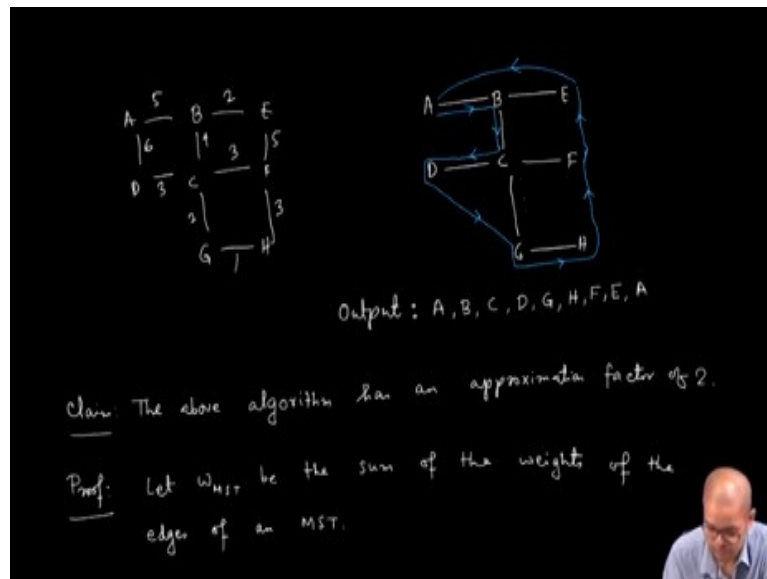 5 2
A B E
6 4 3 5
D 3 C F
2 3
G 1 H
A B E
D C F
G H
Output : A, B, C, D, G, H, F, E, A
Claim: The above algorithm has an approximation factor of 2.
Proof: Let WMST be the sum of the weights of the
edges of an MST.